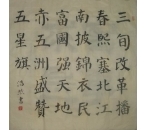 三旬改革播
春熙塞北江
南披錦衣民
富國强天地
赤五洲盛贊
五星旗